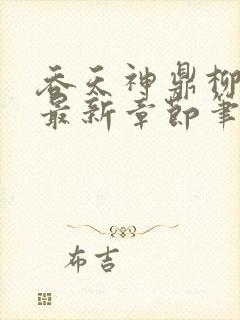 吞天神鼎柳
最新章节笔
布吉